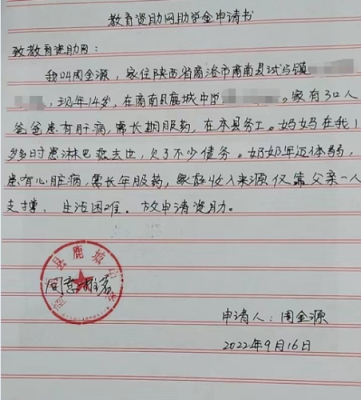 教育资助网助学金申请书
致教育资助网：
我叫周金源，家住陕西省商洛市商南县试马镇
，现年14岁，在商南县鹿城中学。家有3口人
爸爸患有肝病，需长期服药，在本县务工。妈妈在我1
岁多时患淋巴癌去世，欠了不少债务。奶奶年迈体弱，
患有心脏病，需长年服药，家庭收入来源仅靠父亲一人
支撑，生活困难。故申请资助。
县鹿城
同意
申请人：周金源
2022年9月16日